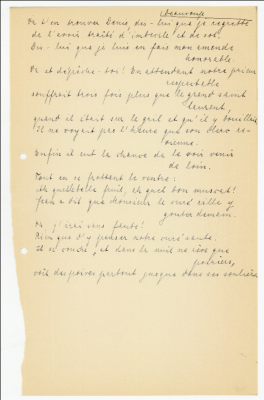 beaucoup
Va t'en trouver Denis, dis-lui que je regrette
de l'avoir traité d'imbécile et de sot.
Dis-lui que je lui en fais mon amende
honorable.
Va et dépêche-toi! En attendant notre prieur
respectable
souffrait trois fois plus que le grand saint
Laurent,
quand il était sur le gril et qu'il y bouillait
Il ne voyait pas l'heure que son clerc re-
vienne.
Enfin il eut la chance de le voir venir
de loin.
Tout en se frottant le ventre:
Ah quelle belle fruit, et quel bon muscat!
Jean a dit que Monsieur le curé aille y
goûter demain.
Oh, j'irai sans faute!
Rien que d'y penser notre curé saute.
Il se couche, et dans la nuit ne rêve que
poiriers,
voit des poires partout jusque dans ses souliers.